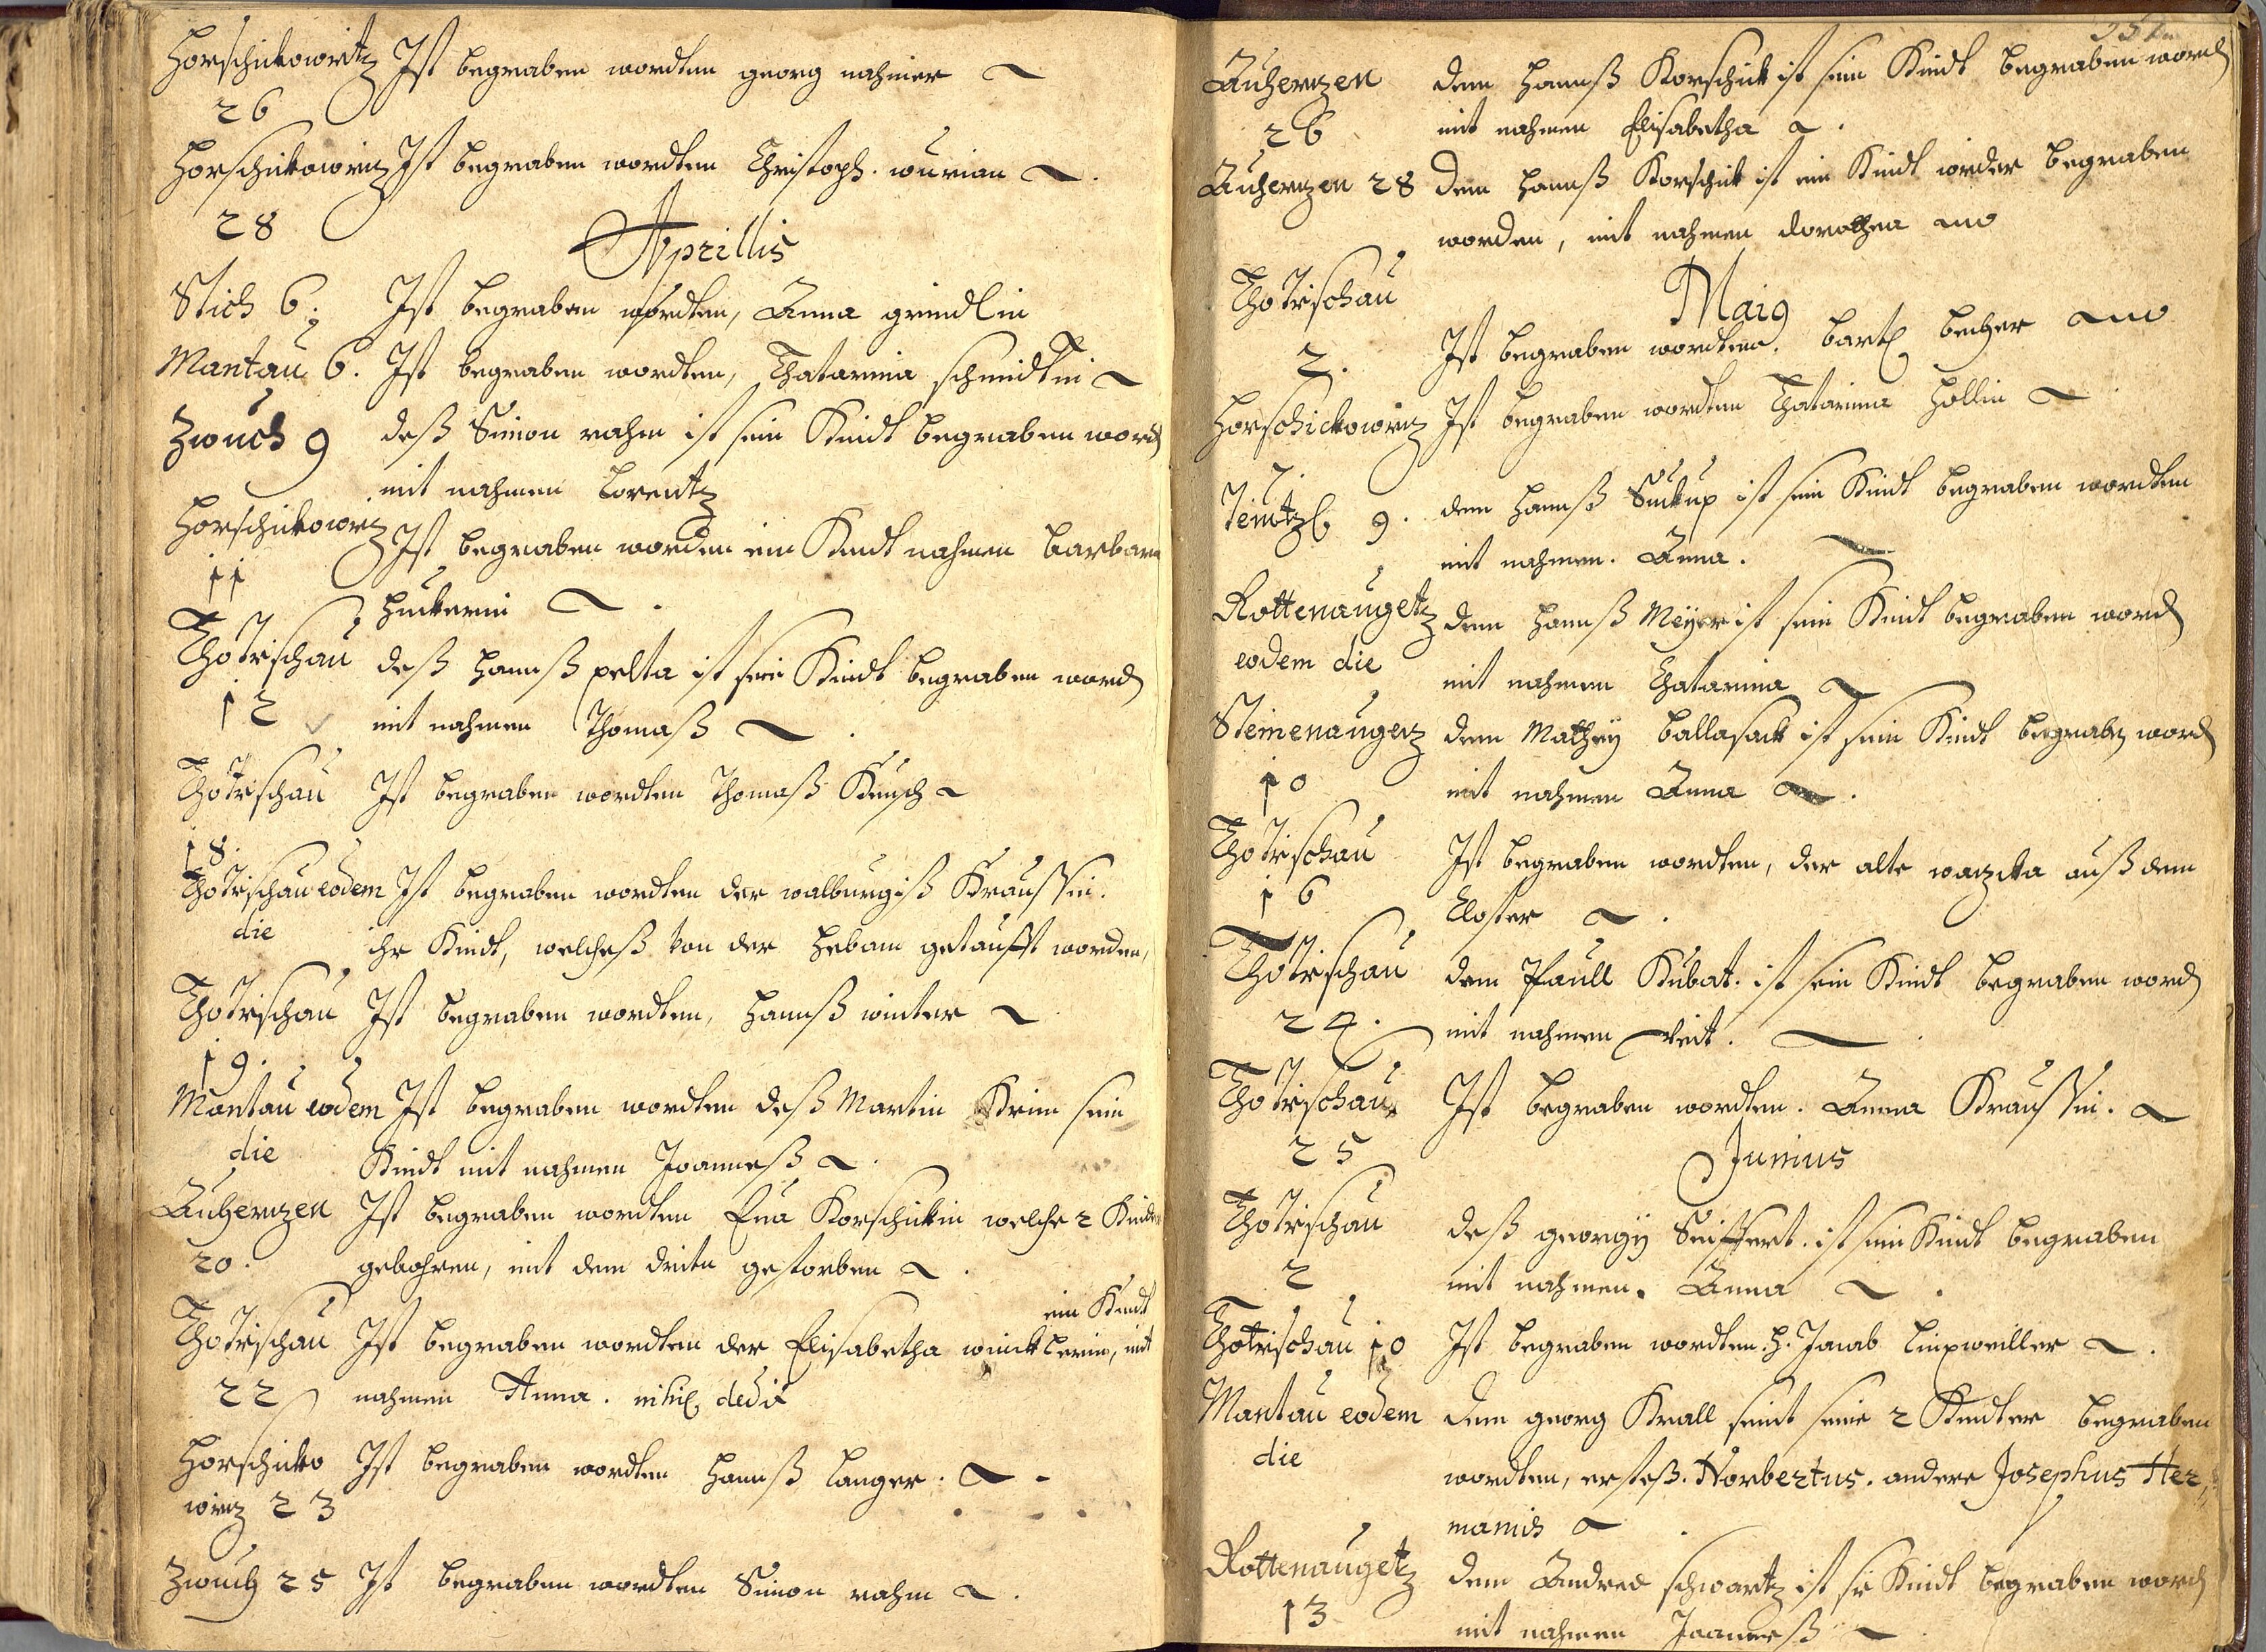 Horschickowitz Ist begraben wordten georg nahmer
26
Horschickowitz Ist begraben wordten Christoph. wurian
28
Aprillis
Stich 6. Ist begraben wordten, Anna grindlin
Mantau 6. Ist begraben wordten, Chatarina schmidtin
Zwuch 9 deß Simon rahm ist sein Kindt begraben word
mit nahmen Lorentz
Horschickowitz Ist begraben worden ein Kindt nahmen Barbara
11
Huckerin
Chotischau deß Hannß pelta ist sein Kindt begraben word
12 mit nahmen Thomaß
Chotischau Ist begraben wordten Thomaß Kusch
18.
Chotischau eodem Ist begraben wordten der walburgiß Kraussin.
die ihr Kindt, welcheß von der Hebam getaufft worden,
Chotischau Ist begraben wordten, Hannß winter
19.
Mantau eodem Ist begraben wordten deß Martin Krim sein
die Kindt mit nahmen Joanneß
Auherzen Ist begraben wordten Eua Korschickin welche 2 Kinder
20. gebohren, mit dem dritn gestorben
ein Kindt
Chotischau Ist begraben wordten der Elisabetha wincklerin, mit
22 nahmen Anna. nihil dedit
Horschicko Ist begraben wordten Hannß Langer.
witz 23
Zwuch 25 Ist begraben wordten Simon rahm
Auherzen dem Hannß Korschick ist sein Kindt begraben word
26 mit nahmen Elisabetha
Auherzen 28 dem Hannß Korschick ist ein Kindt wider begraben
worden, mit nahmen dorothea
Chotischau
Maig
2. Ist begraben wordten. Bartl becher
Horschickowitz Ist begraben wordten Chatarina Hollin
7.
Teinitzl 9. dem Hannß Suckup ist sein Kindt begraben wordten
mit nahmen. Anna.
Rottenaugetz dem Hannß Meyer ist sein Kindt begraben word
eodem die mit nahmen Chatarina
Steinenaugetz dem Mathey ballasack ist sein Kindt begraben word
10 mit nahmen Anna
Chotischau Ist begraben wordten, der alte wazicka auß dem
16 Closter
Chotischau dem Paull Kubat. ist sein Kindt begraben word
24. mit nahmen Veit.
Chotischau Ist begraben wordten. Anna Kraussin.
25
Junius
Chotischau deß georgy Seiffert. ist sein Kindt begraben
2 mit nahmen. Anna
Chotischau 10 Ist begraben wordten. H. Jacob Linxweiller
Mantau eodem dem georg Krall seint seine 2 Kindter begraben
die wordten, ersteß. Norbertus. andere Josephus Her,
manus
Rottenaugetz dem Andree schwartz ist se Kindt begraben word
13 mit nahmen Joanneß